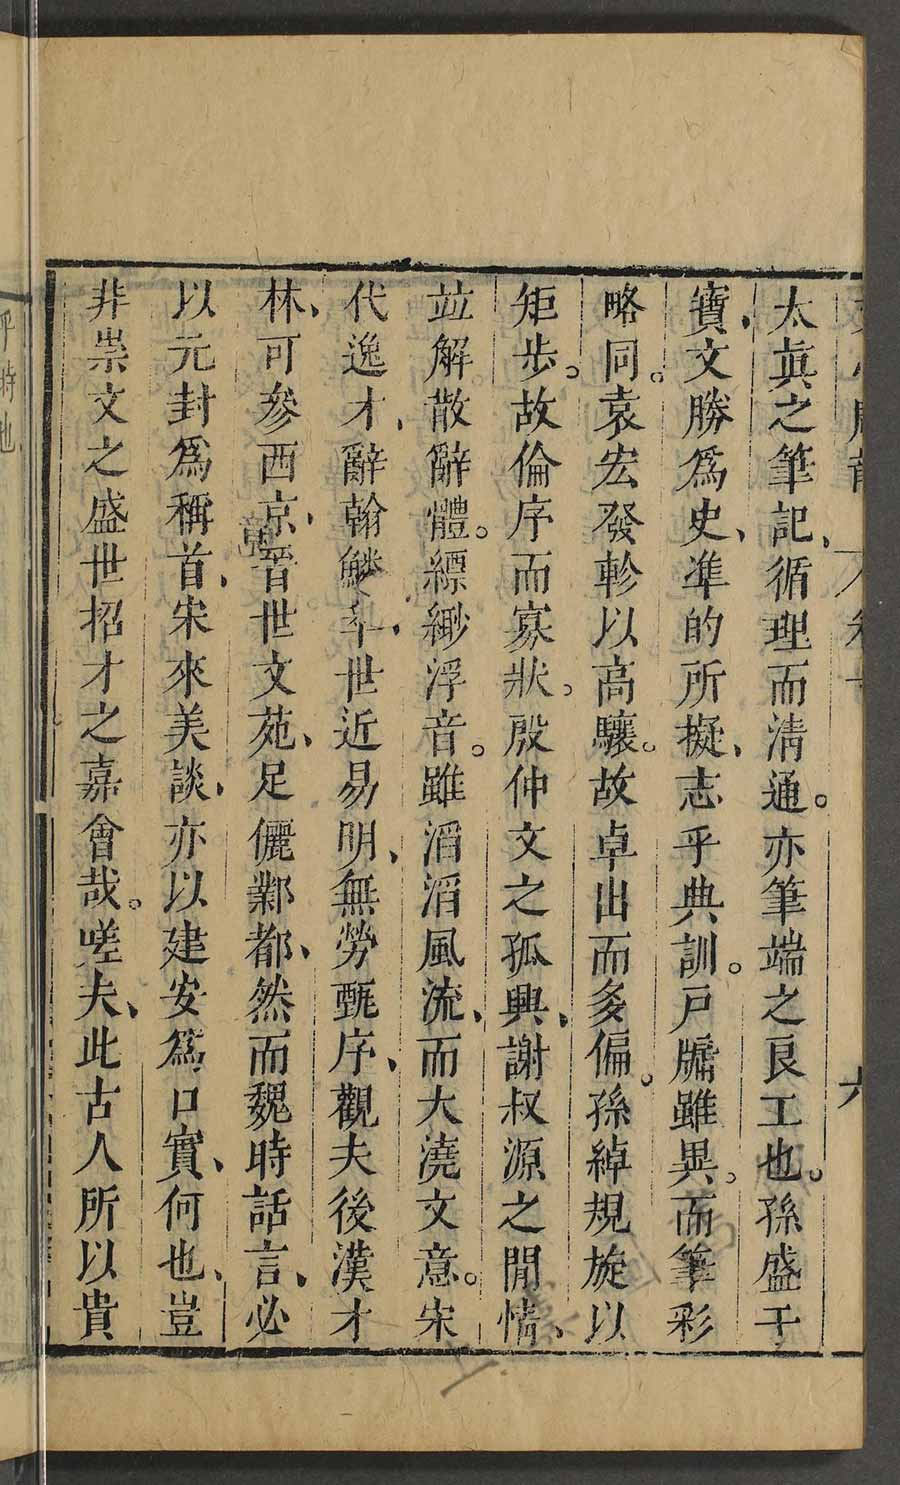 太眞之筆記、循理而清通。亦筆端之良工也。孫盛干
寶、文勝爲史、凖的所擬、志乎典訓。戶牖雖異。而筆彩
略同。袁宏發軫以高驤。故卓出而多偏。孫綽規旋以
矩步。故倫序而寡狀。殷仲文之孤興、謝叔源之閒情、
竝解散辭體。縹緲浮音。雖滔滔風流、而大澆文意。宋
代逸才、辭翰鱗萃、世近易明、無勞甄序、觀夫後漢才
林、可參西京、晉世文苑、足儷鄴都、然而魏時話言、必
以元封爲稱首、宋來美談、亦以建安爲口實、何也、豈
非崇文之盛世招才之嘉會哉。嗟夫、此古人所以貴